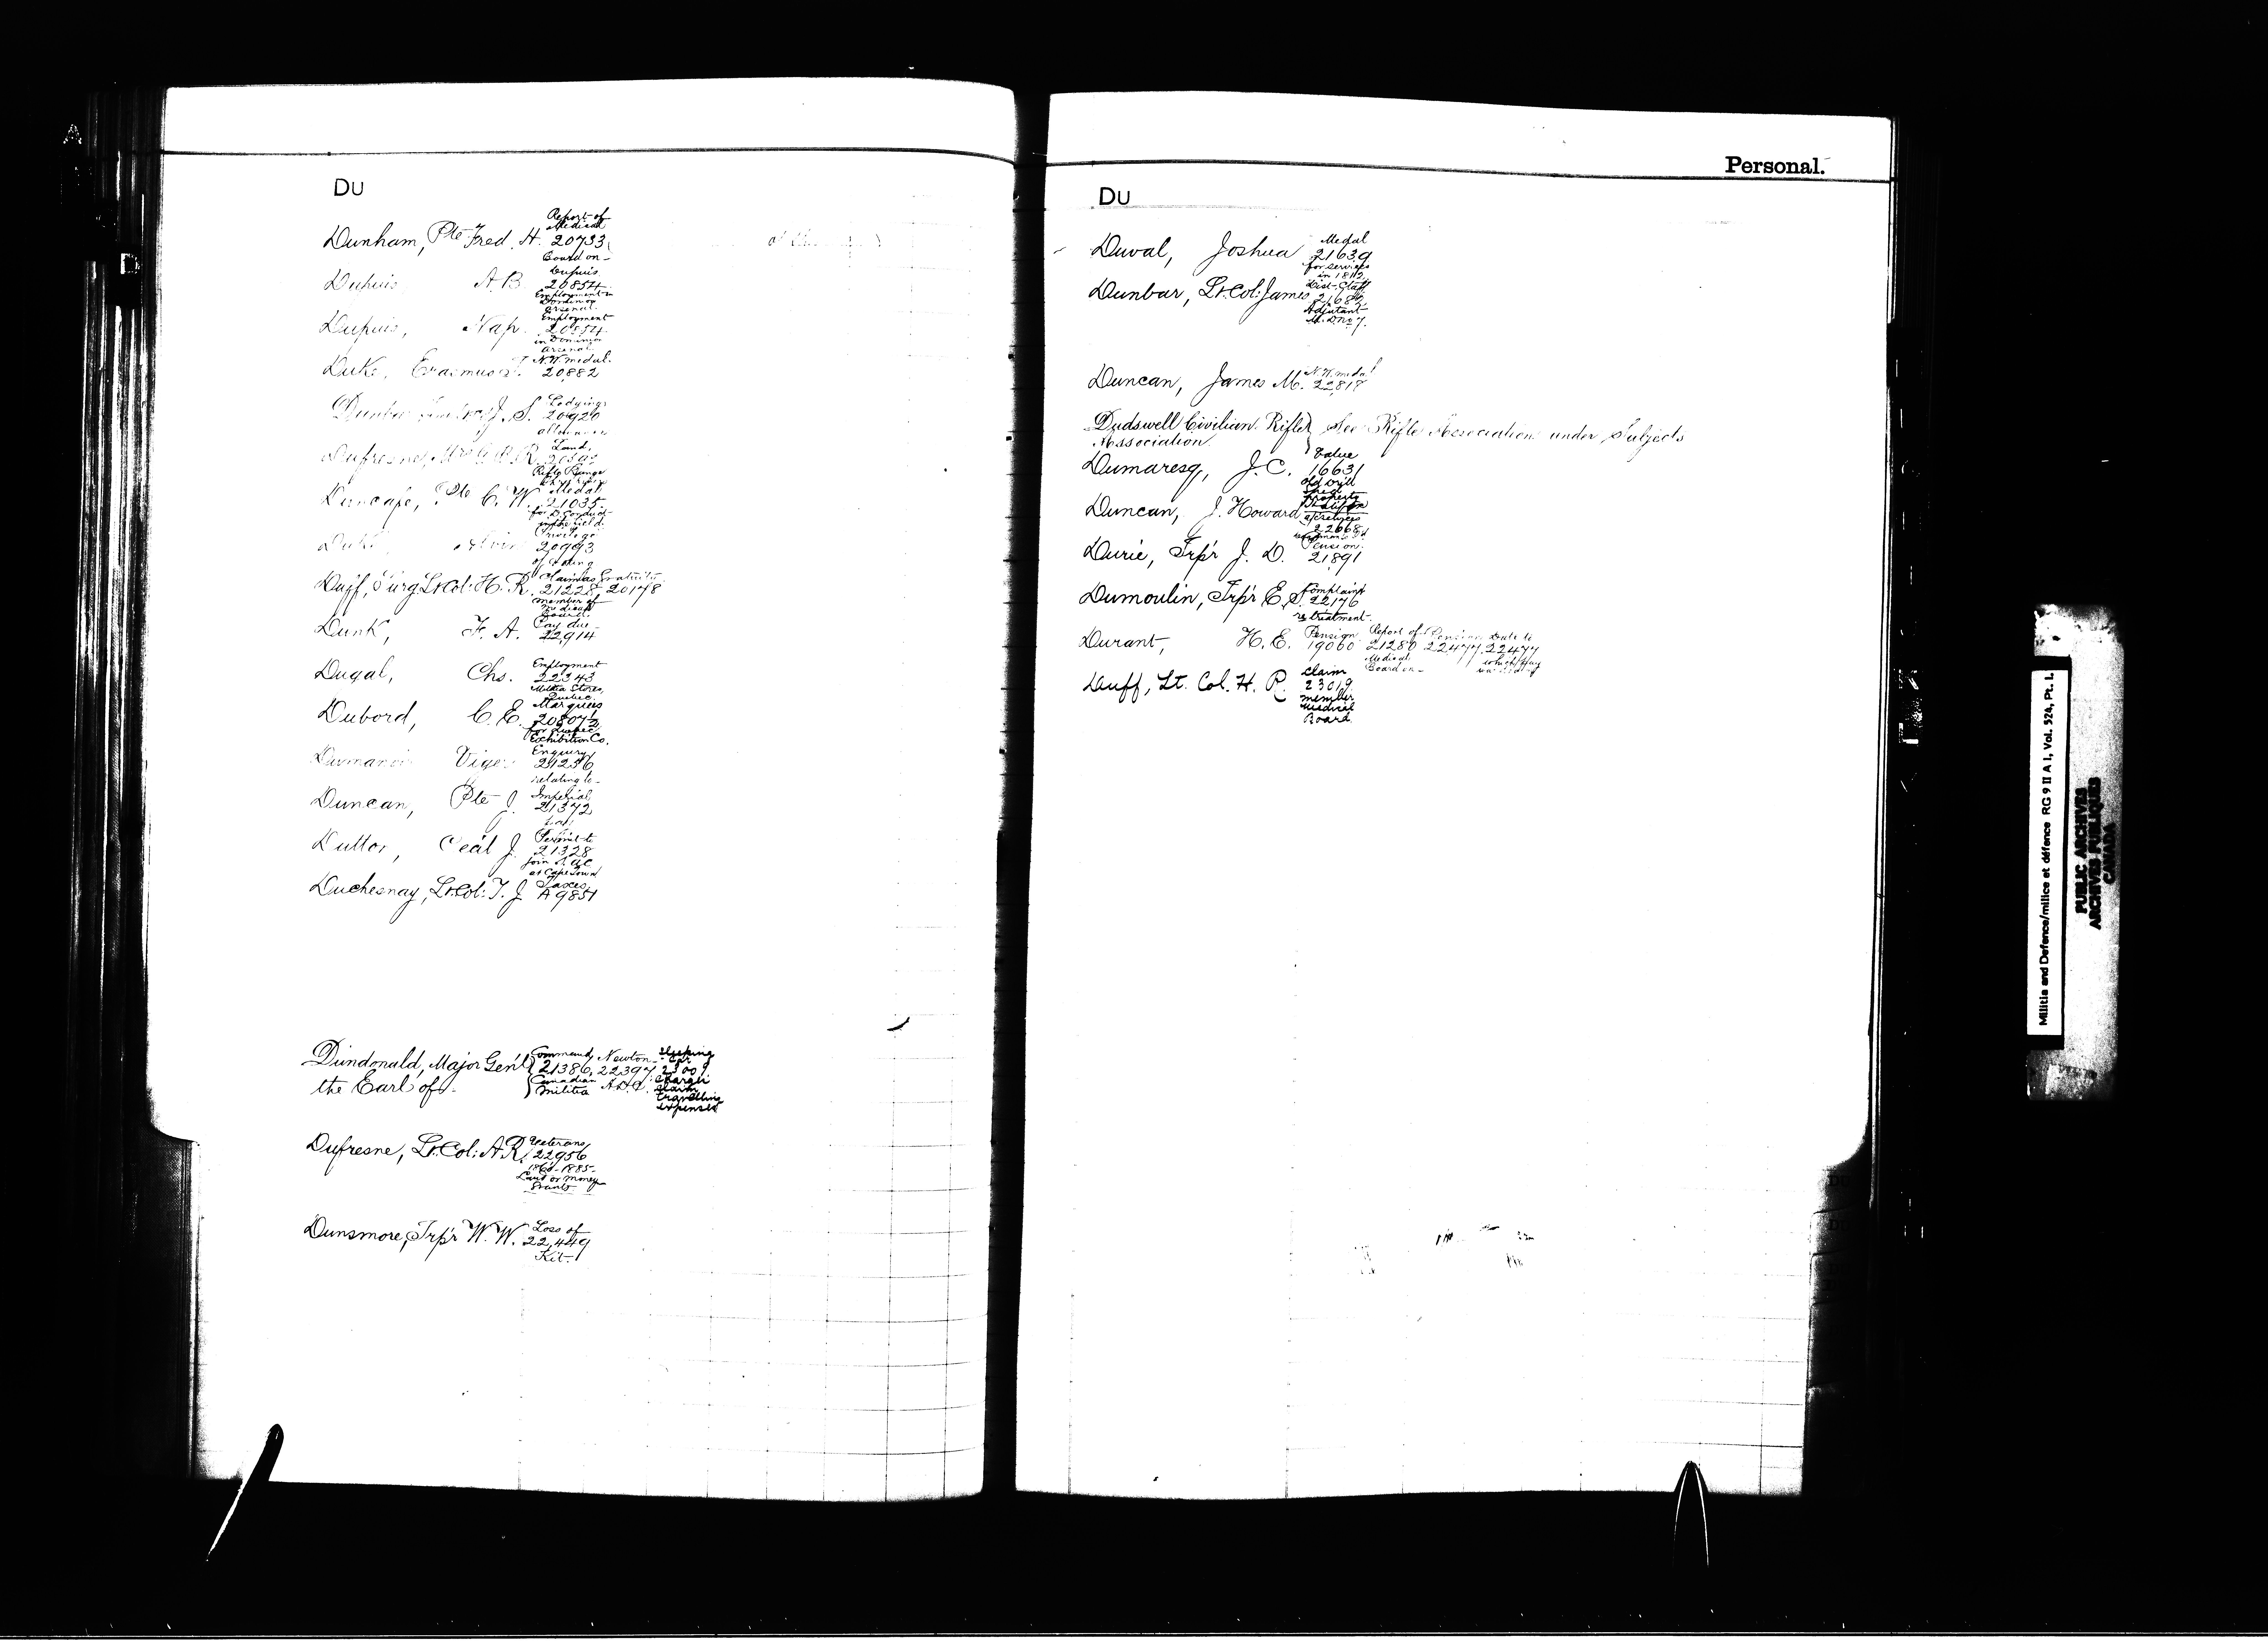 DU
Report of
Medical
Dunham, Pte Fred. H. 20733
Board on -
Dupuis
Dupuis A.B. 20854
Employment in
Dominion
Arsenal.
Employment
Dupuis, Nap. 20854
in Dominion
Arsenal.
N.W. medal.
Duke, Erasmus T. 20882
Lodging
Dunbar J. S. 20920
allowance
Land,
Dufresne, R.
Rifle Range
Medal
Pte C. W. 21035
for D. Conduct
in the field.
Privilege
Duke 20993
of
Claim as Gratuity
Duff, Surg. Lt. Col: H. R. 21228, 20178
Member of
Medical
Board.
Pay due
Dunk, F. A. 22914
Employment
Dugal, Chs. 22343
Militia Stores,
Quebec.
Marquees
Dubord, C. E. 20807½
for Quebec
Exhibition Co.
Enquiry
Viger 21256
relating to -
Imperial
Duncan, Pte J. 21372
Permit to
Dutton, Cecil J. 21328
join
at Cape Town
Taxes
Duchesnay, Lt. Col: T. J. A 9851
Command Newton Sleeping
Car
Dundonald, Major Gen'l 21386, 22397, 23007
the Earl of - Canadian A.D.C. Charge
Militia Claim
travelling
expenses
Veterans
Dufresne, Lt. Col: A.R. 22956
1866-1885-
Land or Money
Grants
Loss of
Dunsmore, Trp'r W. W. 22,449
Kit.
Personal.
DU
Medal
Duval, Joshua 21639
for services
in 1812
Dist. Staff
Dunbar, Lt. Col: James 21682
Adjutant
M. D. No 7.
N.W. medal
Duncan, James M. 22,817
Dudswell Civilian Rifle } See Rifle Associations under Subjects
Association
Value
Dumaresq, J.C. 16631
Old Drill
Shed
property
Halifax
Duncan, J. Howard
22668
Pension
Durie, Trp'r J. D. 21,891
Complaint
Dumoulin, Trp'r E. S. 22176
re treatment
Pension Report of Pension Date to
Durant, H. E. 19060 21280 22477, 22477
Medical which
Board on -
Claim
Duff, Lt. Col. H. R. 23019
member
Medical
Board.
Militia and Defence/milice et défence RG 9 II A 1, Vol. 524, Pt. I.
PUBLIC ARCHIVES
ARCHIVES PUBLIQUES
CANADA